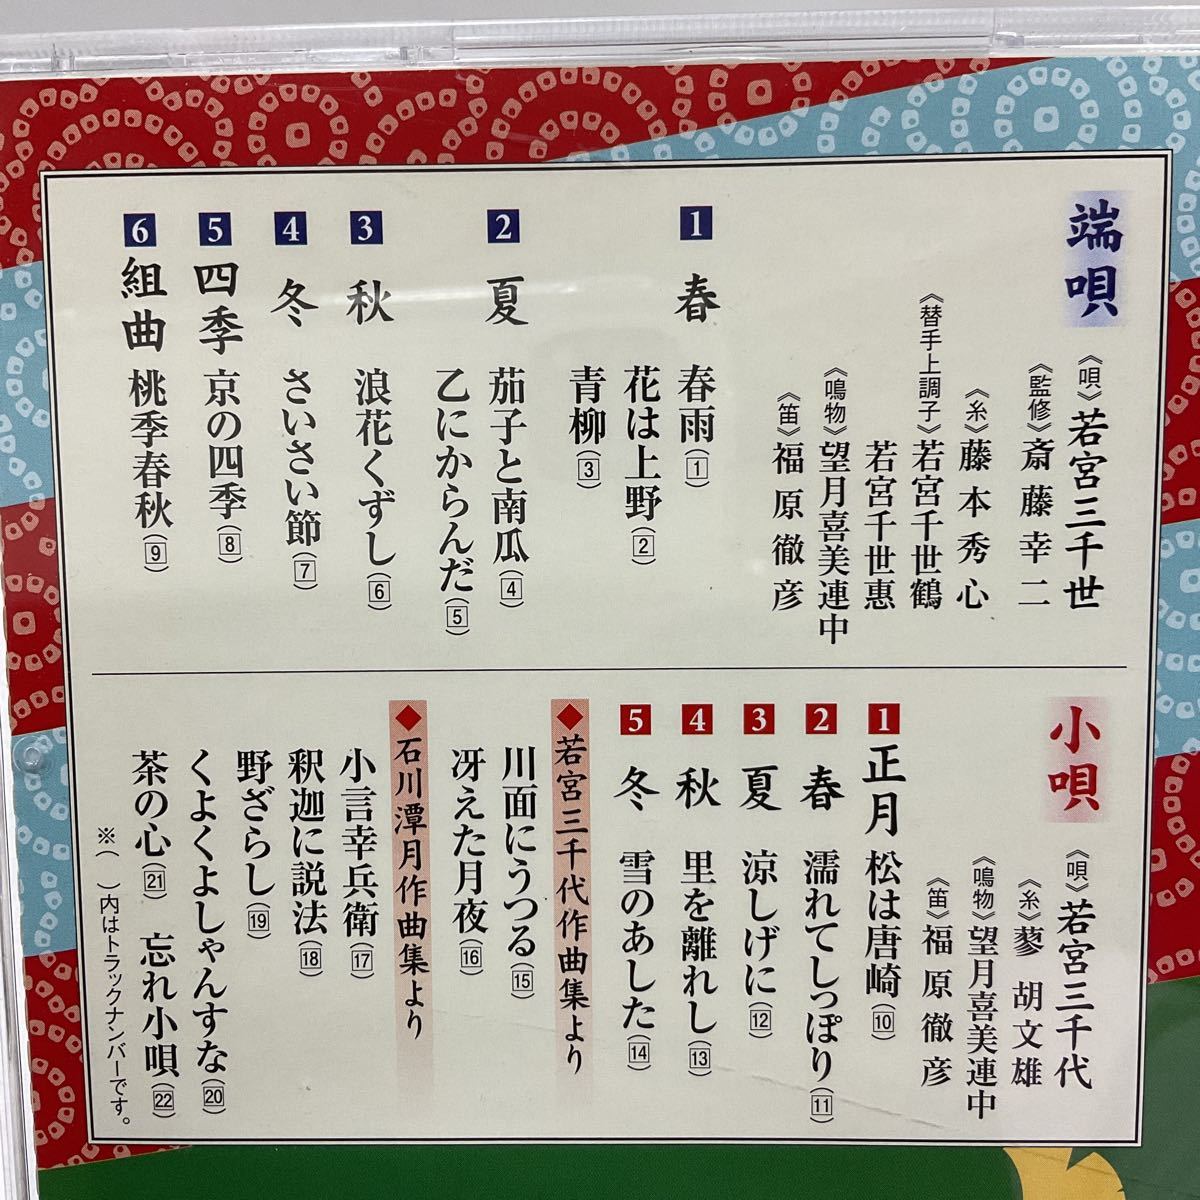 端唄
《唄》若宮三千世
《監修》斎藤幸二
《糸》藤本秀心
《替手上調子》若宮千世鶴
若宮千世惠
《鳴物》望月喜美連中
《笛》福原徹彦
1 春 春雨(1)
花は上野(2)
青柳(3)
2 夏 茄子と南瓜(4)
乙にからんだ(5)
3 秋 浪花くずし(6)
4 冬 さいさい節(7)
5 四季 京の四季(8)
6 組曲 桃季春秋(9)
小唄
《唄》若宮三千代
《糸》蓼 胡文雄
《鳴物》望月喜美連中
《笛》福原徹彦
1 正月 松は唐崎(10)
2 春 濡れてしっぽり(11)
3 夏 涼しげに(12)
4 秋 里を離れし(13)
5 冬 雪のあした(14)
◆若宮三千代作曲集より
川面にうつる(15)
冴えた月夜(16)
◆石川潭月作曲集より
小言幸兵衛(17)
釈迦に説法(18)
野ざらし(19)
くよくよしゃんすな(20)
茶の心(21) 忘れ小唄(22)
※( )内はトラックナンバーです。